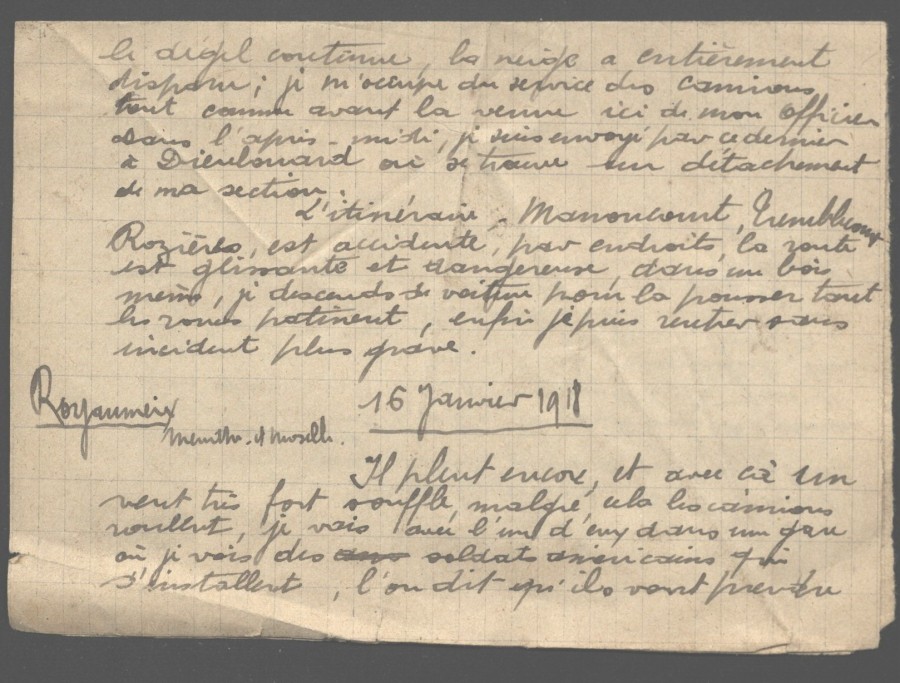 le dégel continue, la neige a entièrement
disparu ; je m'occupe du service des camions
tout comme avant la venue ici de mon Officier
dans l'après-midi, je suis envoyé par ce dernier
à Dieulouard où se trouve un détachement
de ma section.
L'itinéraire - Manoncourt, Tremblecourt
Rozières, est accidenté, par endroits, la route
est glissante et dangereuse, dans un bois
même, je descends de voiture pour la pousser tant
les roues patinent, enfin je puis rentrer sans
incident plus grave.
Royaumeix 16 Janvier 1918
Meurthe et Moselle.
Il pleut encore, et avec cà un
vent très fort souffle, malgré cela les camions
roulent, je vais avec l'un d'eux dans une gare
où je vois des soldats américains qui
s'installent, l'on dit qu'ils vont prendre